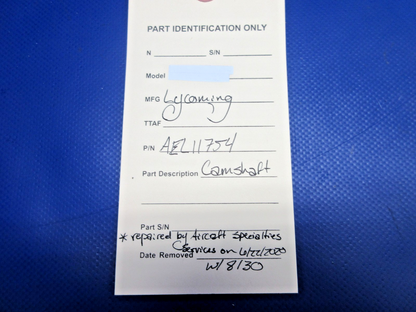 PART IDENTIFICATION ONLY
N S/N
Model
MFG Lycoming
TTAF
P/N AEL11754
Part Description Camshaft
Part S/N
* repaired by Aircraft Specialties
Services on 6/22/2020
Date Removed
w/ 8130